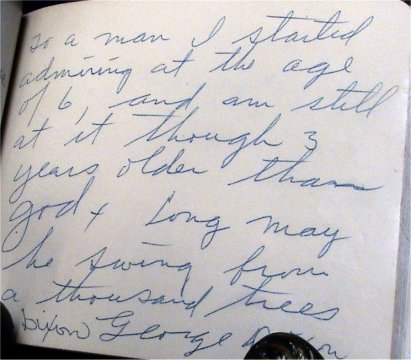 to a man I started
admiring at the age
of 6, and am still
at it though 3
years older than
god + Long may
he swing from
a thousand trees
Dixon George Dixon